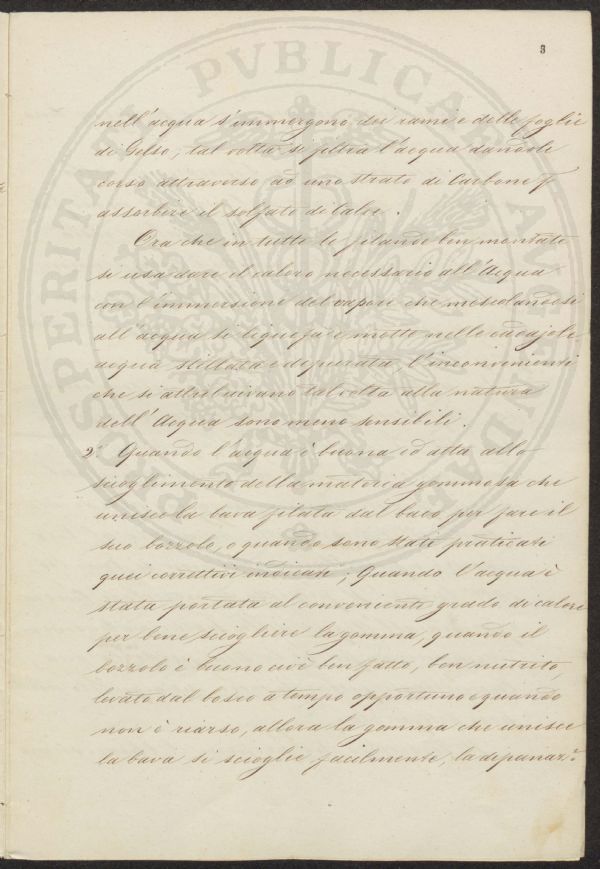 3
nell'acqua s'immergono dei rami e delle foglie
di Gelso; tal volta si filtra l'acqua dandole
corso attraverso ad uno strato di Carbone p
assorbire il solfato di Calce.
Ora che in tutte le filande ben montate
si usa dare il calore necessario all'Acqua
con l'immersione del vapore che mescolandosi
all'acqua si liquefa e mette nelle
acqua stillata e depurata, l'inconvenienti
che si attribuivano tal volta alla natura
dell'Acqua sono meno sensibili.
2° Quando l'acqua è buona ed atta allo
scioglimento della materia gommosa che
unisce la bava filata dal baco per fare il
suo bozzolo, o quando sono state praticate
quei correttivi indicati; Quando l'acqua è
stata portata al conveniente grado di calore
per bene sciogliere la gomma, quando il
bozzolo è buono cioè ben fatto, ben nutrito,
levato dal bosco a tempo opportuno e quando
non è riarso, allora la gomma che unisce
la bava si scioglie facilmente, la dipanaz.e
PROSPERITATI PVBLICAE AVGENDAE